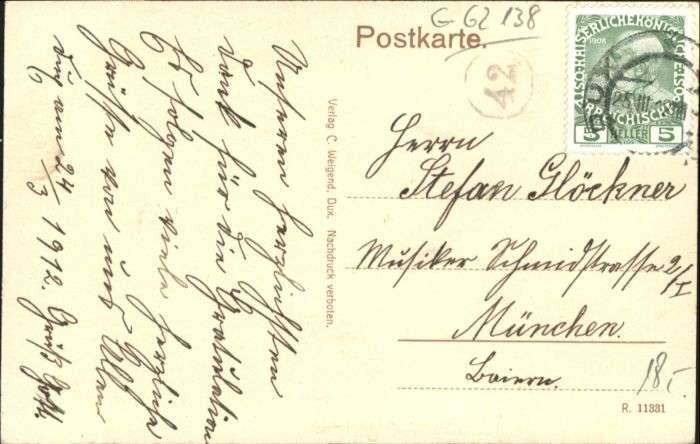 G G2 138
Postkarte.
KAISERLICHE KÖNIGLICHE ÖSTERREICHISCHE
1908
5 HELLER 5
25.III.
42
Unseren herzlichsten
Dank für die Gratulation
Es folgen viele herzliche
Grüße von uns Allen
Dux am 24/3 1912. Grüß Gott.
Verlag C. Weigend, Dux. Nachdruck verboten.
Herrn
Stefan Glöckner
Musiker Schmidstrasse 2/I
München.
Baiern.
18,-
R. 11881